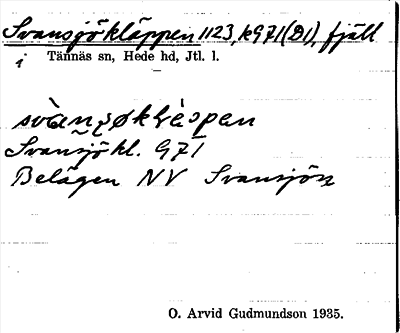 Svansjökläppen 1123, k971(D1), fjäll
i Tännäs sn, Hede hd, Jtl. l.
Svansjökl. 971
Belägen NV Svansjön
O. Arvid Gudmundson 1935.